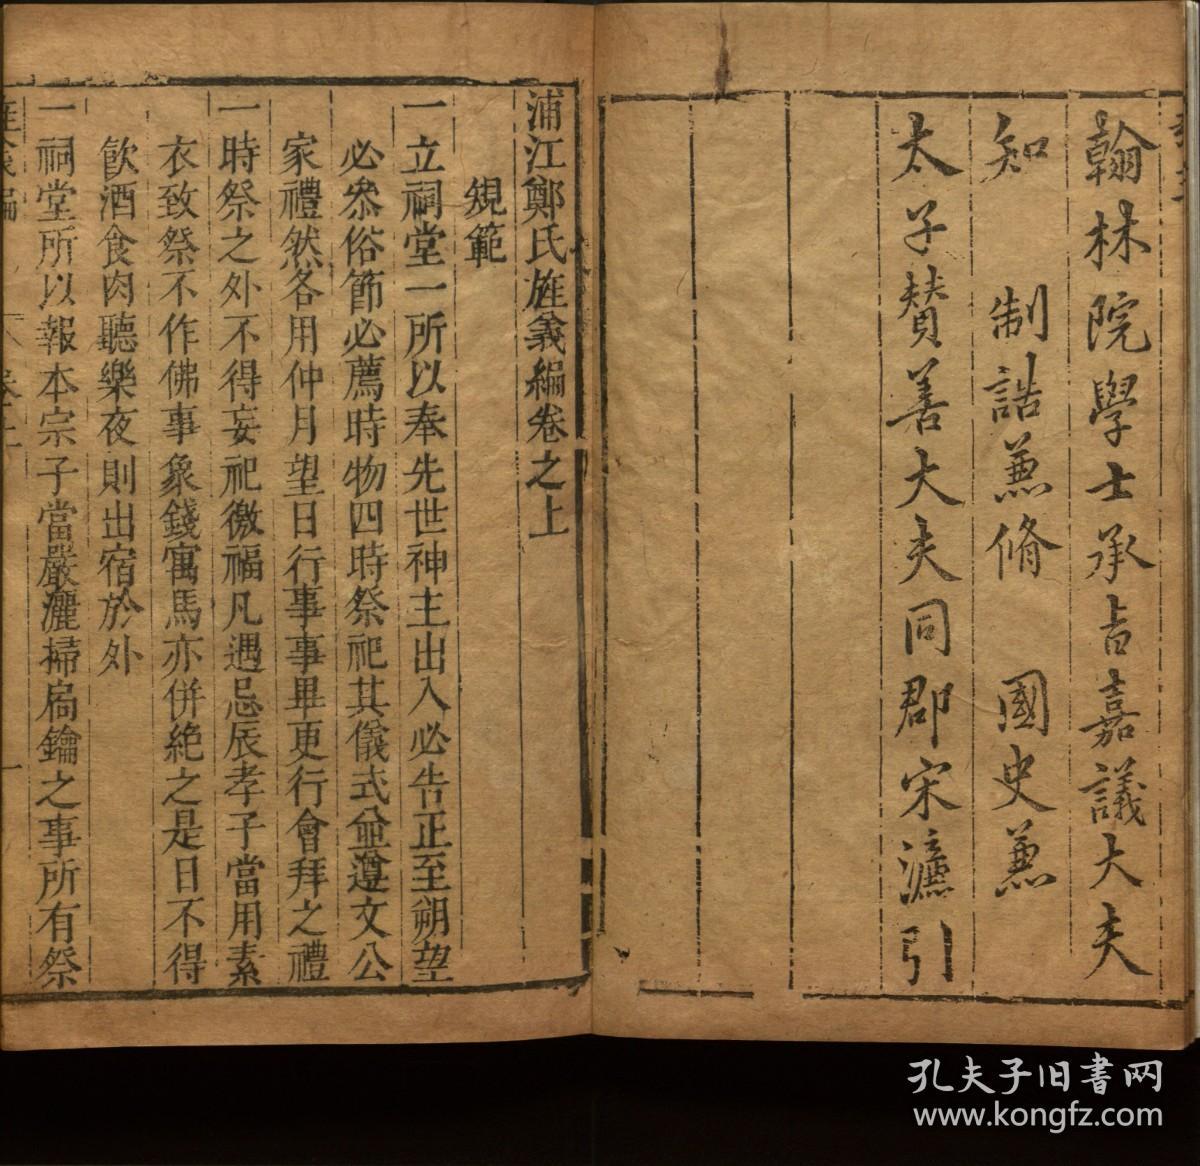 翰林院學士承旨嘉議大夫
知　制誥兼脩　國史兼
太子贊善大夫同郡宋濂引
浦江鄭氏旌義編卷之上
規範
一立祠堂一所以奉先世神主出入必告正至朔望
必叅俗節必薦時物四時祭祀其儀式並遵文公
家禮然各用仲月望日行事事畢更行會拜之禮
一時祭之外不得妄祀徼福凡遇忌辰孝子當用素
衣致祭不作佛事象錢寓馬亦併絶之是日不得
飲酒食肉聽樂夜則出宿於外
一祠堂所以報本宗子當嚴灑掃扃鑰之事所有祭
孔夫子旧书网
www.kongfz.com